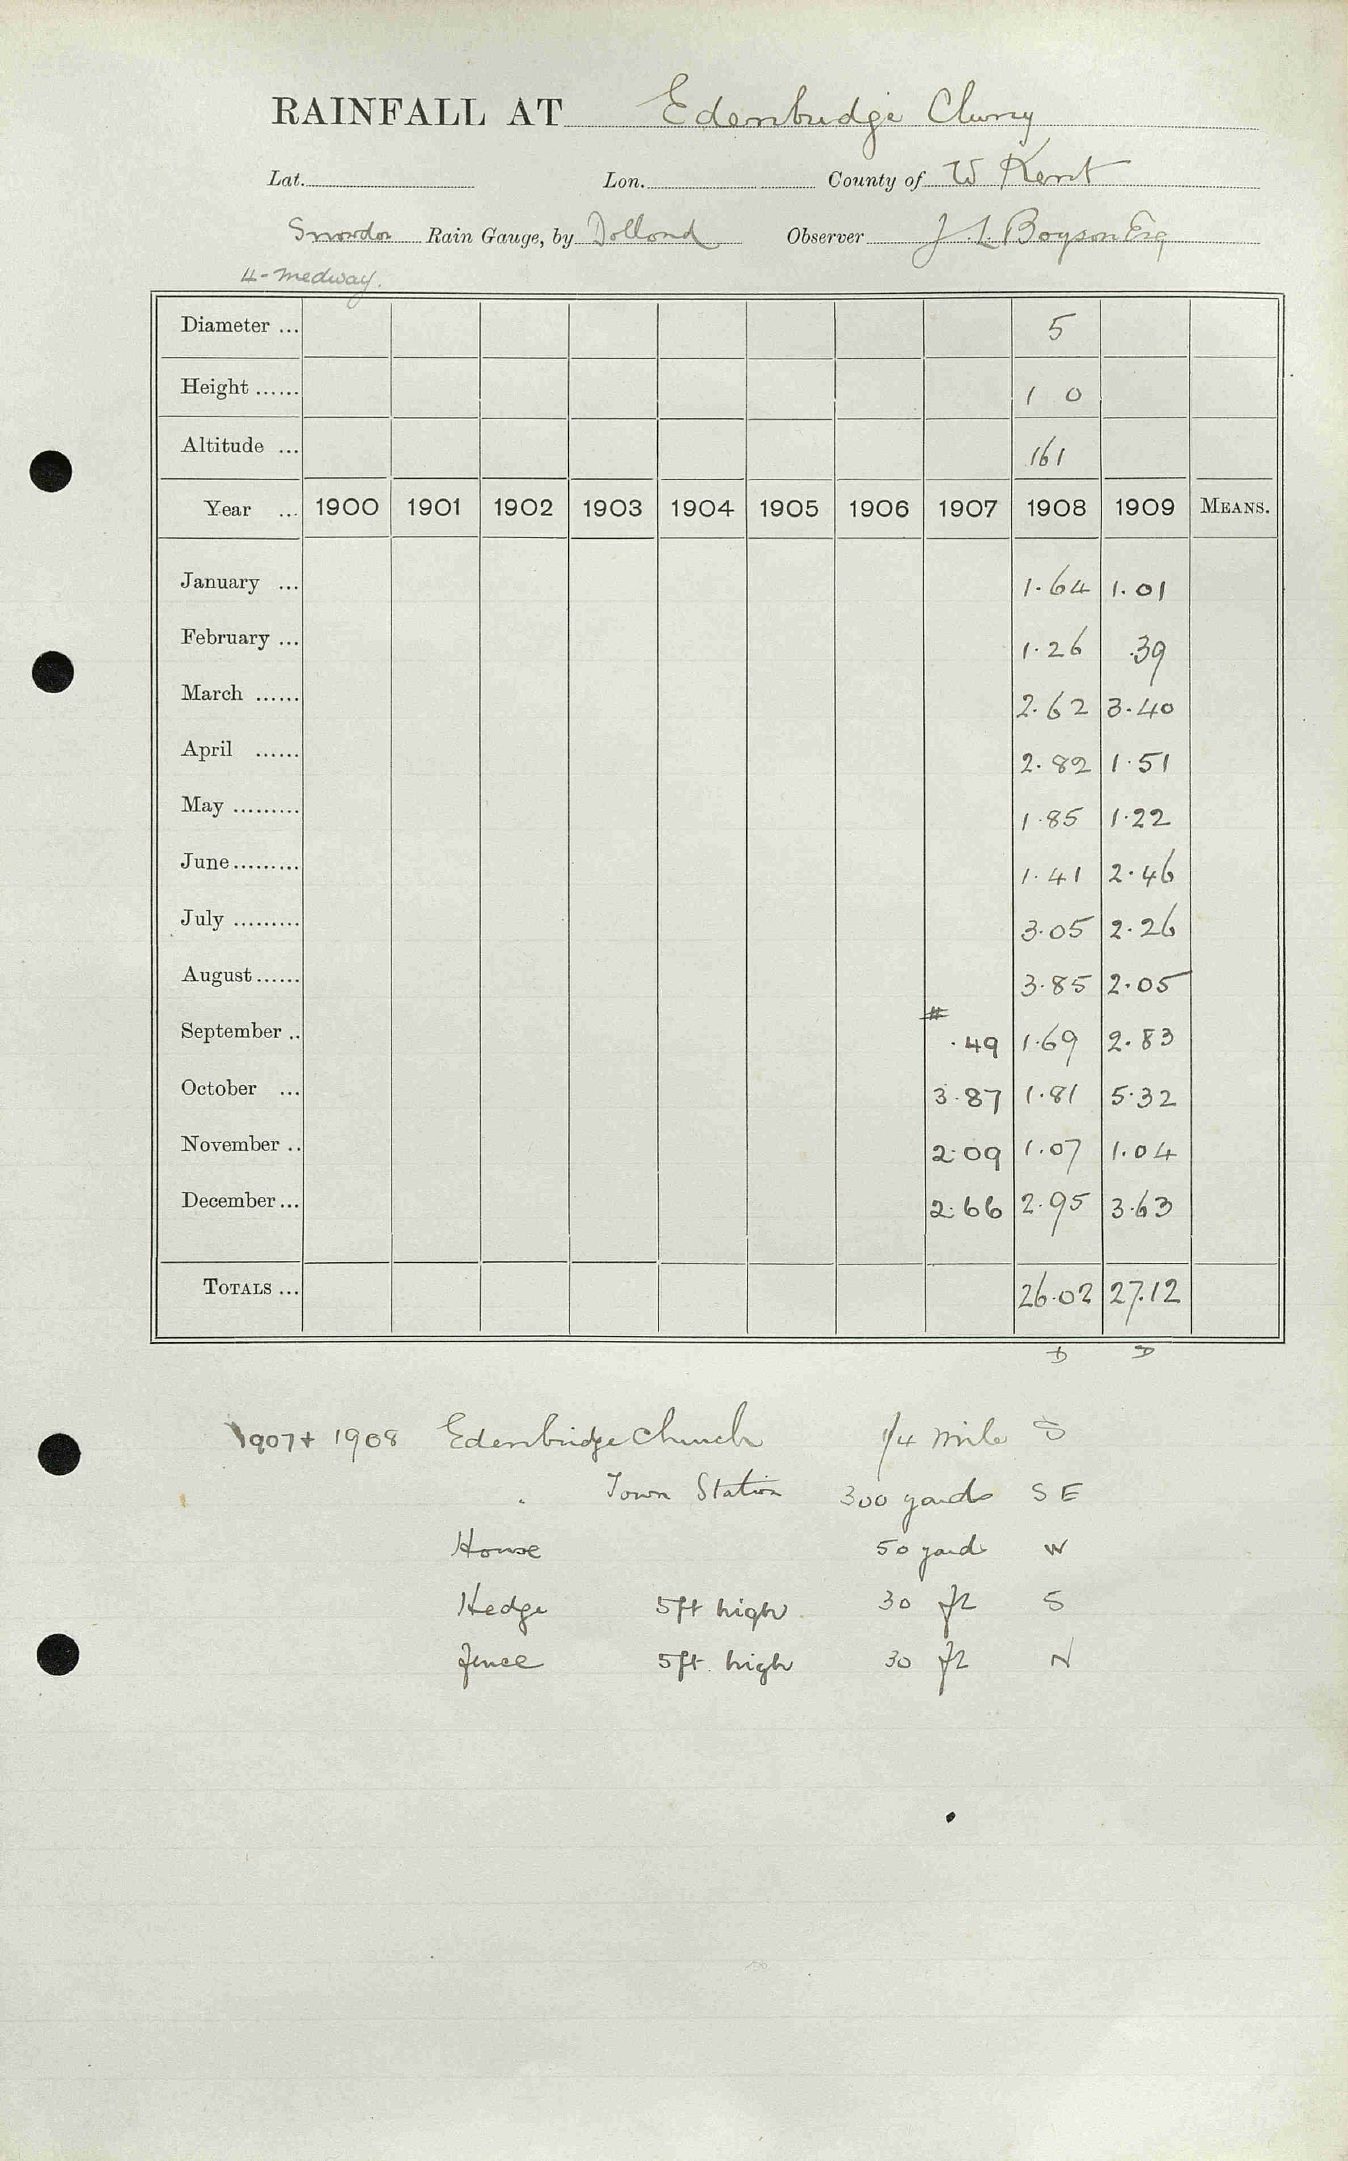 RAINFALL AT Edenbridge Cluny
Lat. Lon. County of W Kent
Snowdon Rain Gauge, by Dollond Observer J L Boyson Esq
4-Medway.
Diameter ... 5
Height ...... 1 0
Altitude ... 161
Year ... 1900 1901 1902 1903 1904 1905 1906 1907 1908 1909 MEANS.
January ... 1.64 1.01
February ... 1.26 .39
March ...... 2.62 3.40
April ...... 2.82 1.51
May ......... 1.85 1.22
June ......... 1.41 2.46
July ......... 3.05 2.26
August ...... 3.85 2.05
#
September .. .49 1.69 2.83
October ... 3.87 1.81 5.32
November .. 2.09 1.07 1.04
December ... 2.66 2.95 3.63
TOTALS ... 26.02 27.12
D D
1907 + 1908 Edenbridge Church 1/4 mile S
Town Station 300 yards SE
House 50 yards W
Hedge 5ft high 30 ft S
fence 5ft. high 30 ft N